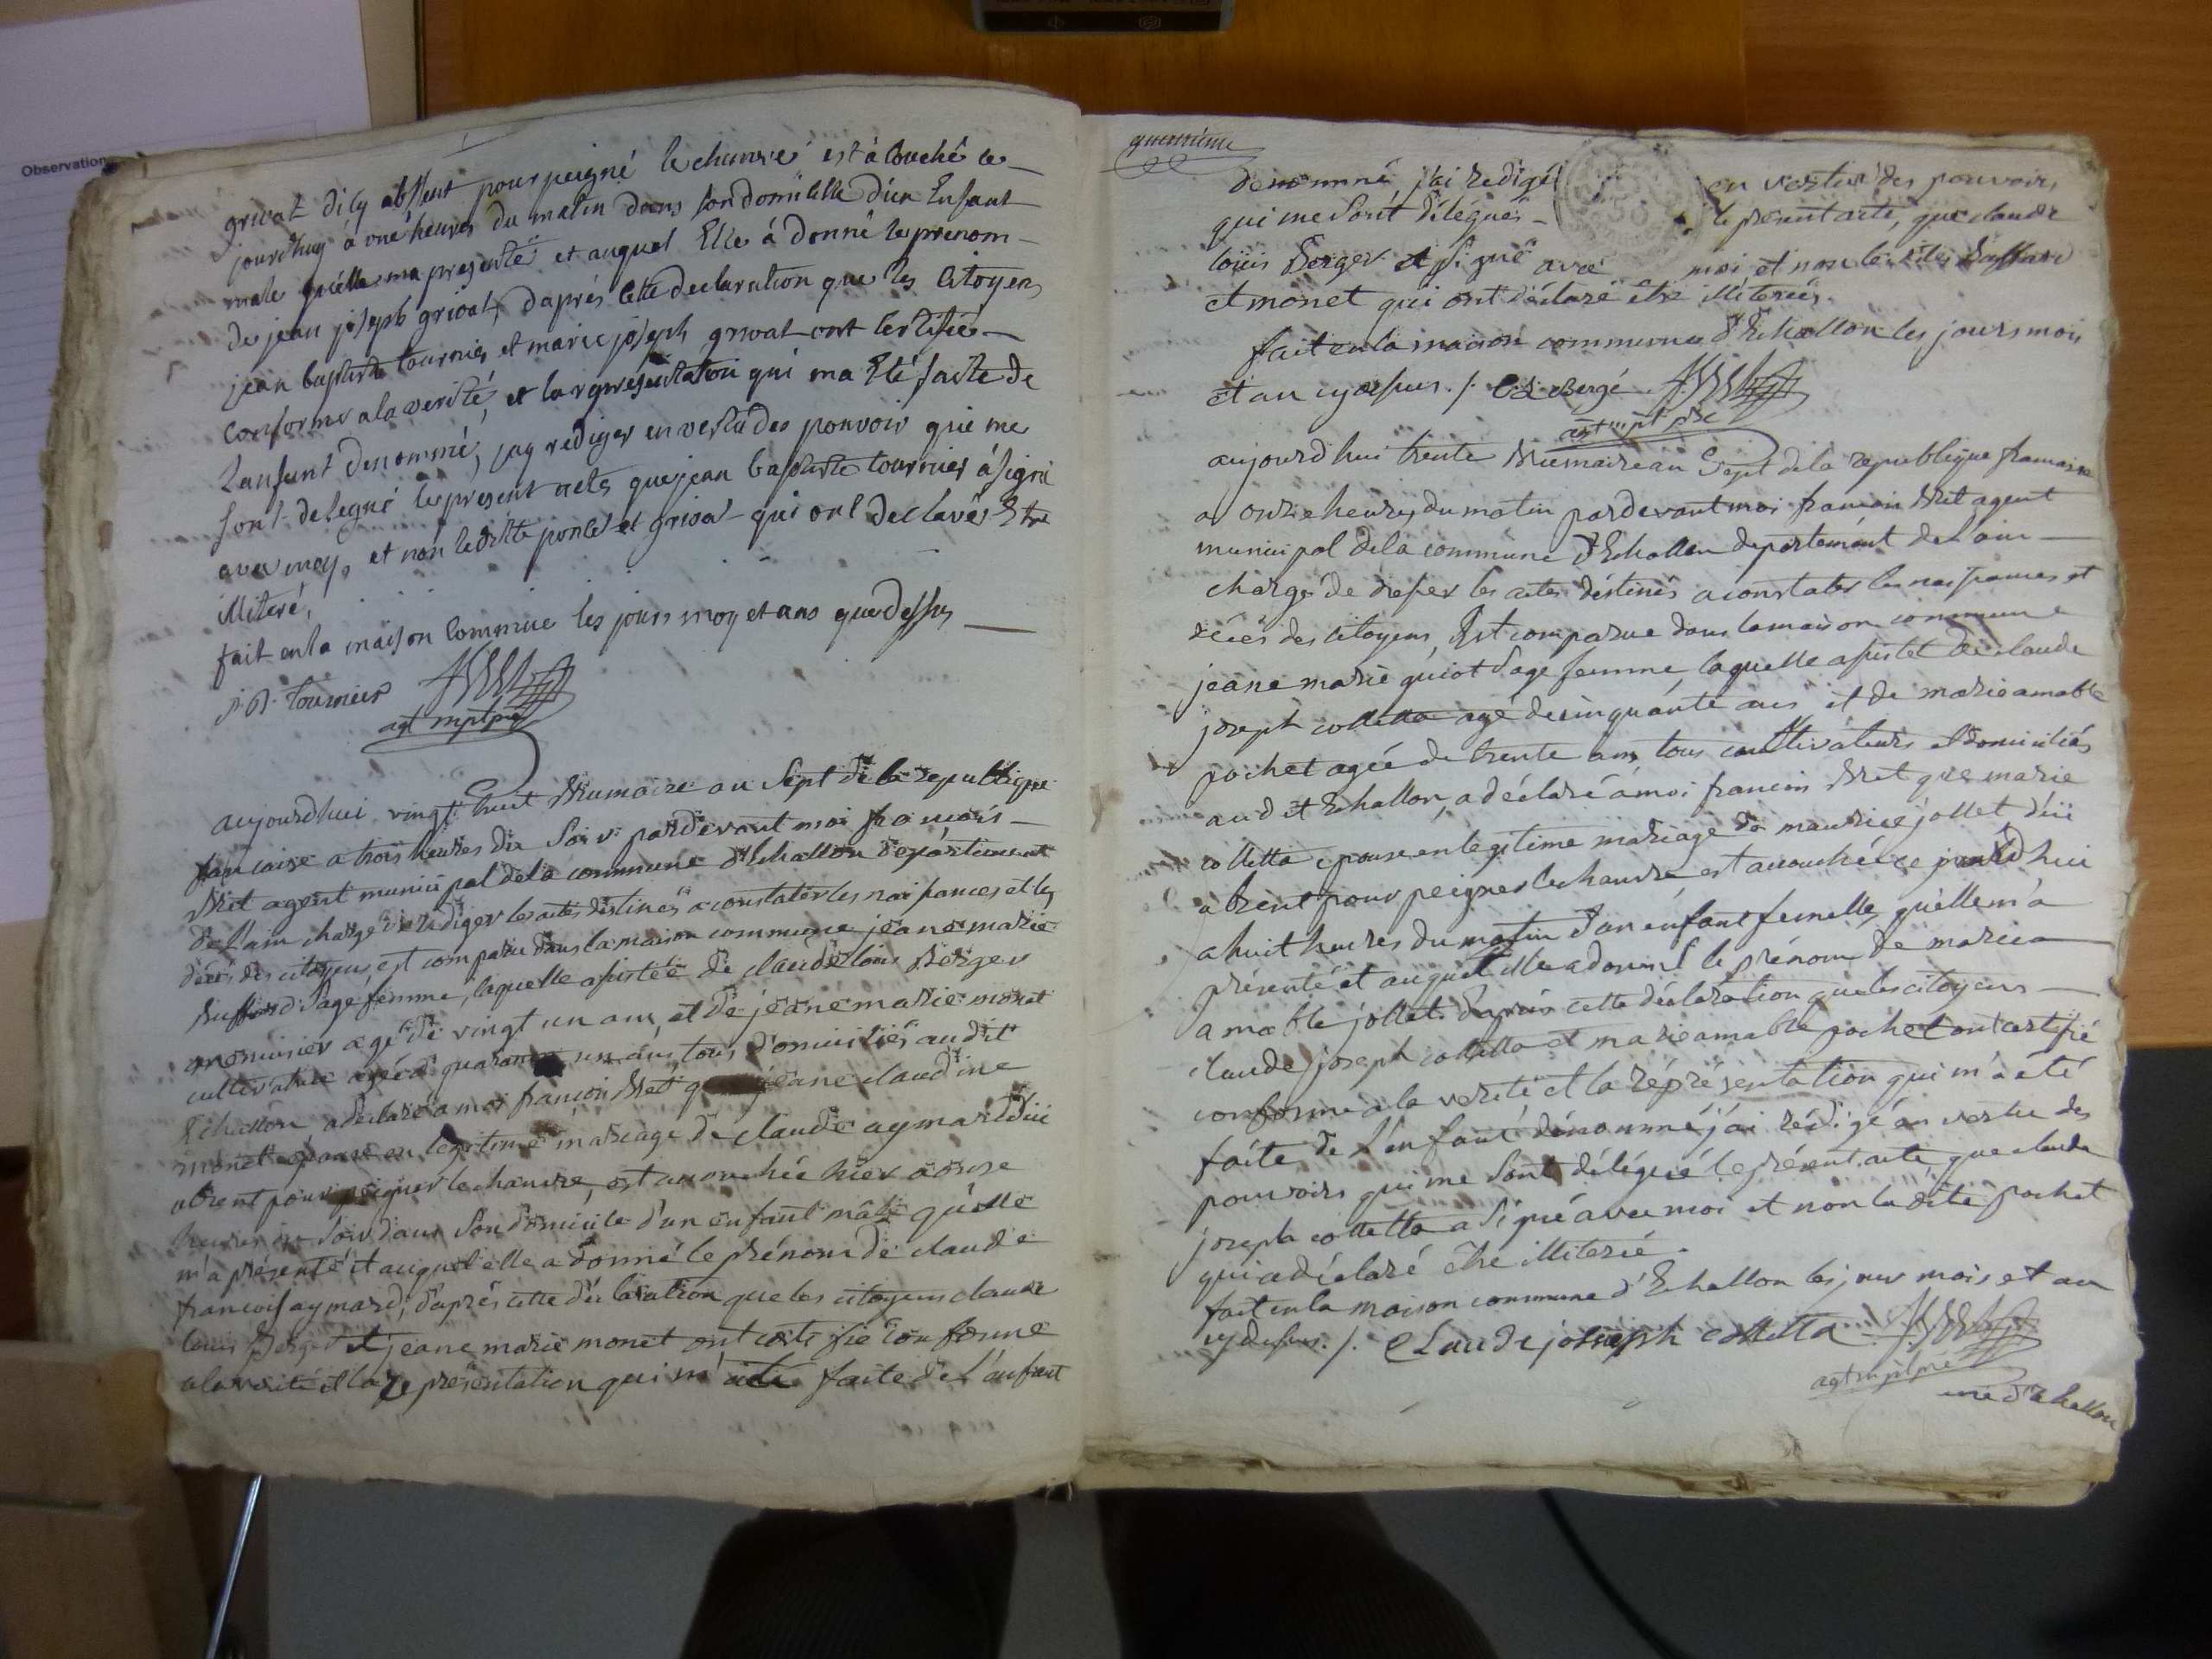 Observation
grivat dicy absent pour peigné le chanvre est à couché ce
jourdhuy à une heures du matin dans son domicille d'un Enfant
male qu'elle ma presenté et auquel Elle à donné le prenom
de jean joseph grivat, daprès cette declaration que les Citoyens
jean baptiste tournier et marie joseph grivat ont Certifié
conforme a la verité, et la représentation qui ma Eté faite de
Lanfant denommé, jay rediger en vertu des pouvoir que me
sont delegué le present acte que jean baptiste tournier à signé
avec moy, et non la ditte poncet et grivat qui ont declarés Etre
illiteré,
fait en la maison Commune les jours moy et ans que dessus
j. B. tournier
agt mpl
aujourdhui vingt huit Brumaire an Sept de la republique
francaise a trois heures du Soir pardevant moi francois
Bret agent municipal de la commune d'Echallon departement
de l'ain chargé de rediger les actes destinés a constater les naissances et les
décès des citoyens, est comparu dans la maison commune jeane marie
Buffard sage femme, laquelle assistée de claude louis Berger
menuisier agé de vingt un ans, et de jeane marie monet
cultivatrice agée de quarante un ans, tous domiciliés audit
Echallon a declaré a moi francois Bret que jeane claudine
monet epouse en legitime mariage de claude aymard dici
absent pour peigner le chanvre, est accouchée hier a onze
heures du Soir dans Son domicile d'un enfant mâle qu'elle
m'a présenté et auquel elle a donné le prénom de claude
francois aymard, d'après cette déclaration que les citoyens claude
louis Berger et jeane marie monet ont certifié conforme
a la verité et la representation qui m'a été faite de l'anfant
quatrième
denommé, j'ai redigé en vertu des pouvoirs
qui me Sont délégués le présent acte, que claude
louis Berger et Signé avec moi et non les dites Buffard
et monet qui ont déclaré être illiterées.
fait en la maison commune d'Echallon les jours mois
et an cy dessus ./. C L Bergé
agt mpl
aujourdhui trente Brumaire an Sept de la republique francaise
a onze heures du matin pardevant moi francois Bret agent
municipal de la commune d'Echallon departement de Lain
chargé de dresser les actes déstinés a constater les naissances et
décès des citoyens, Est comparue dans la maison commune
jeane marie guiot Sage femme, laquelle assistée de claude
joseph colletta agé de cinquante ans et de marie amable
pochet agée de trente ans tous cultivateurs et domiciliés
audit Echallon, a déclaré à moi francois Bret que marie
colletta epouse en legitime mariage de maurice jollet dici
absent pour peigner le chanvre est accouchée ce jourdhui
a huit heures du matin d'un enfant femelle, qu'elle m'a
présenté et auquel elle a donné le prénom de marie
amable jollet. d'après cette déclaration que les citoyens
claude joseph colletta et marie amable pochet ont certifié
conforme a la verité et la réprésentation qui m'a été
faite de L'enfant dénommé j'ai rédigé en vertu des
pouvoirs qui me Sont délégué le présent acte, que claude
joseph colletta a Signé avec moi et non la dite pochet
qui a déclaré être illiterée.
fait en la maison commune d'Echallon les jour mois et an
cy dessus ./. Claude joseph colletta
agt mpl